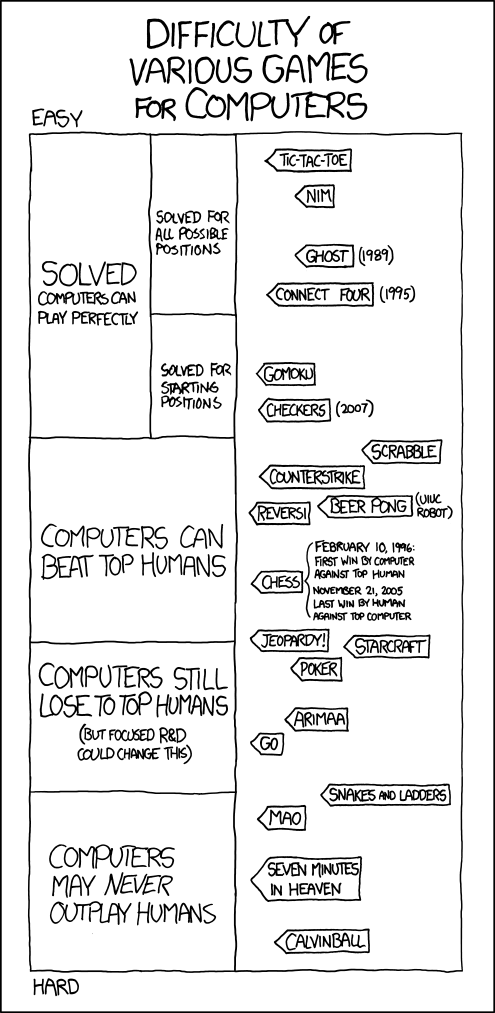 DIFFICULTY OF
VARIOUS GAMES
FOR COMPUTERS
EASY
SOLVED
COMPUTERS CAN
PLAY PERFECTLY
SOLVED FOR
ALL POSSIBLE
POSITIONS
TIC-TAC-TOE
NIM
GHOST (1989)
CONNECT FOUR (1995)
SOLVED FOR
STARTING
POSITIONS
GOMOKU
CHECKERS (2007)
COMPUTERS CAN
BEAT TOP HUMANS
SCRABBLE
COUNTERSTRIKE
REVERSI
BEER PONG (UIUC
ROBOT)
CHESS
FEBRUARY 10, 1996:
FIRST WIN BY COMPUTER
AGAINST TOP HUMAN
NOVEMBER 21, 2005
LAST WIN BY HUMAN
AGAINST TOP COMPUTER
COMPUTERS STILL
LOSE TO TOP HUMANS
(BUT FOCUSED R&D
COULD CHANGE THIS)
JEOPARDY!
STARCRAFT
POKER
ARIMAA
GO
COMPUTERS
MAY NEVER
OUTPLAY HUMANS
SNAKES AND LADDERS
MAO
SEVEN MINUTES
IN HEAVEN
CALVINBALL
HARD